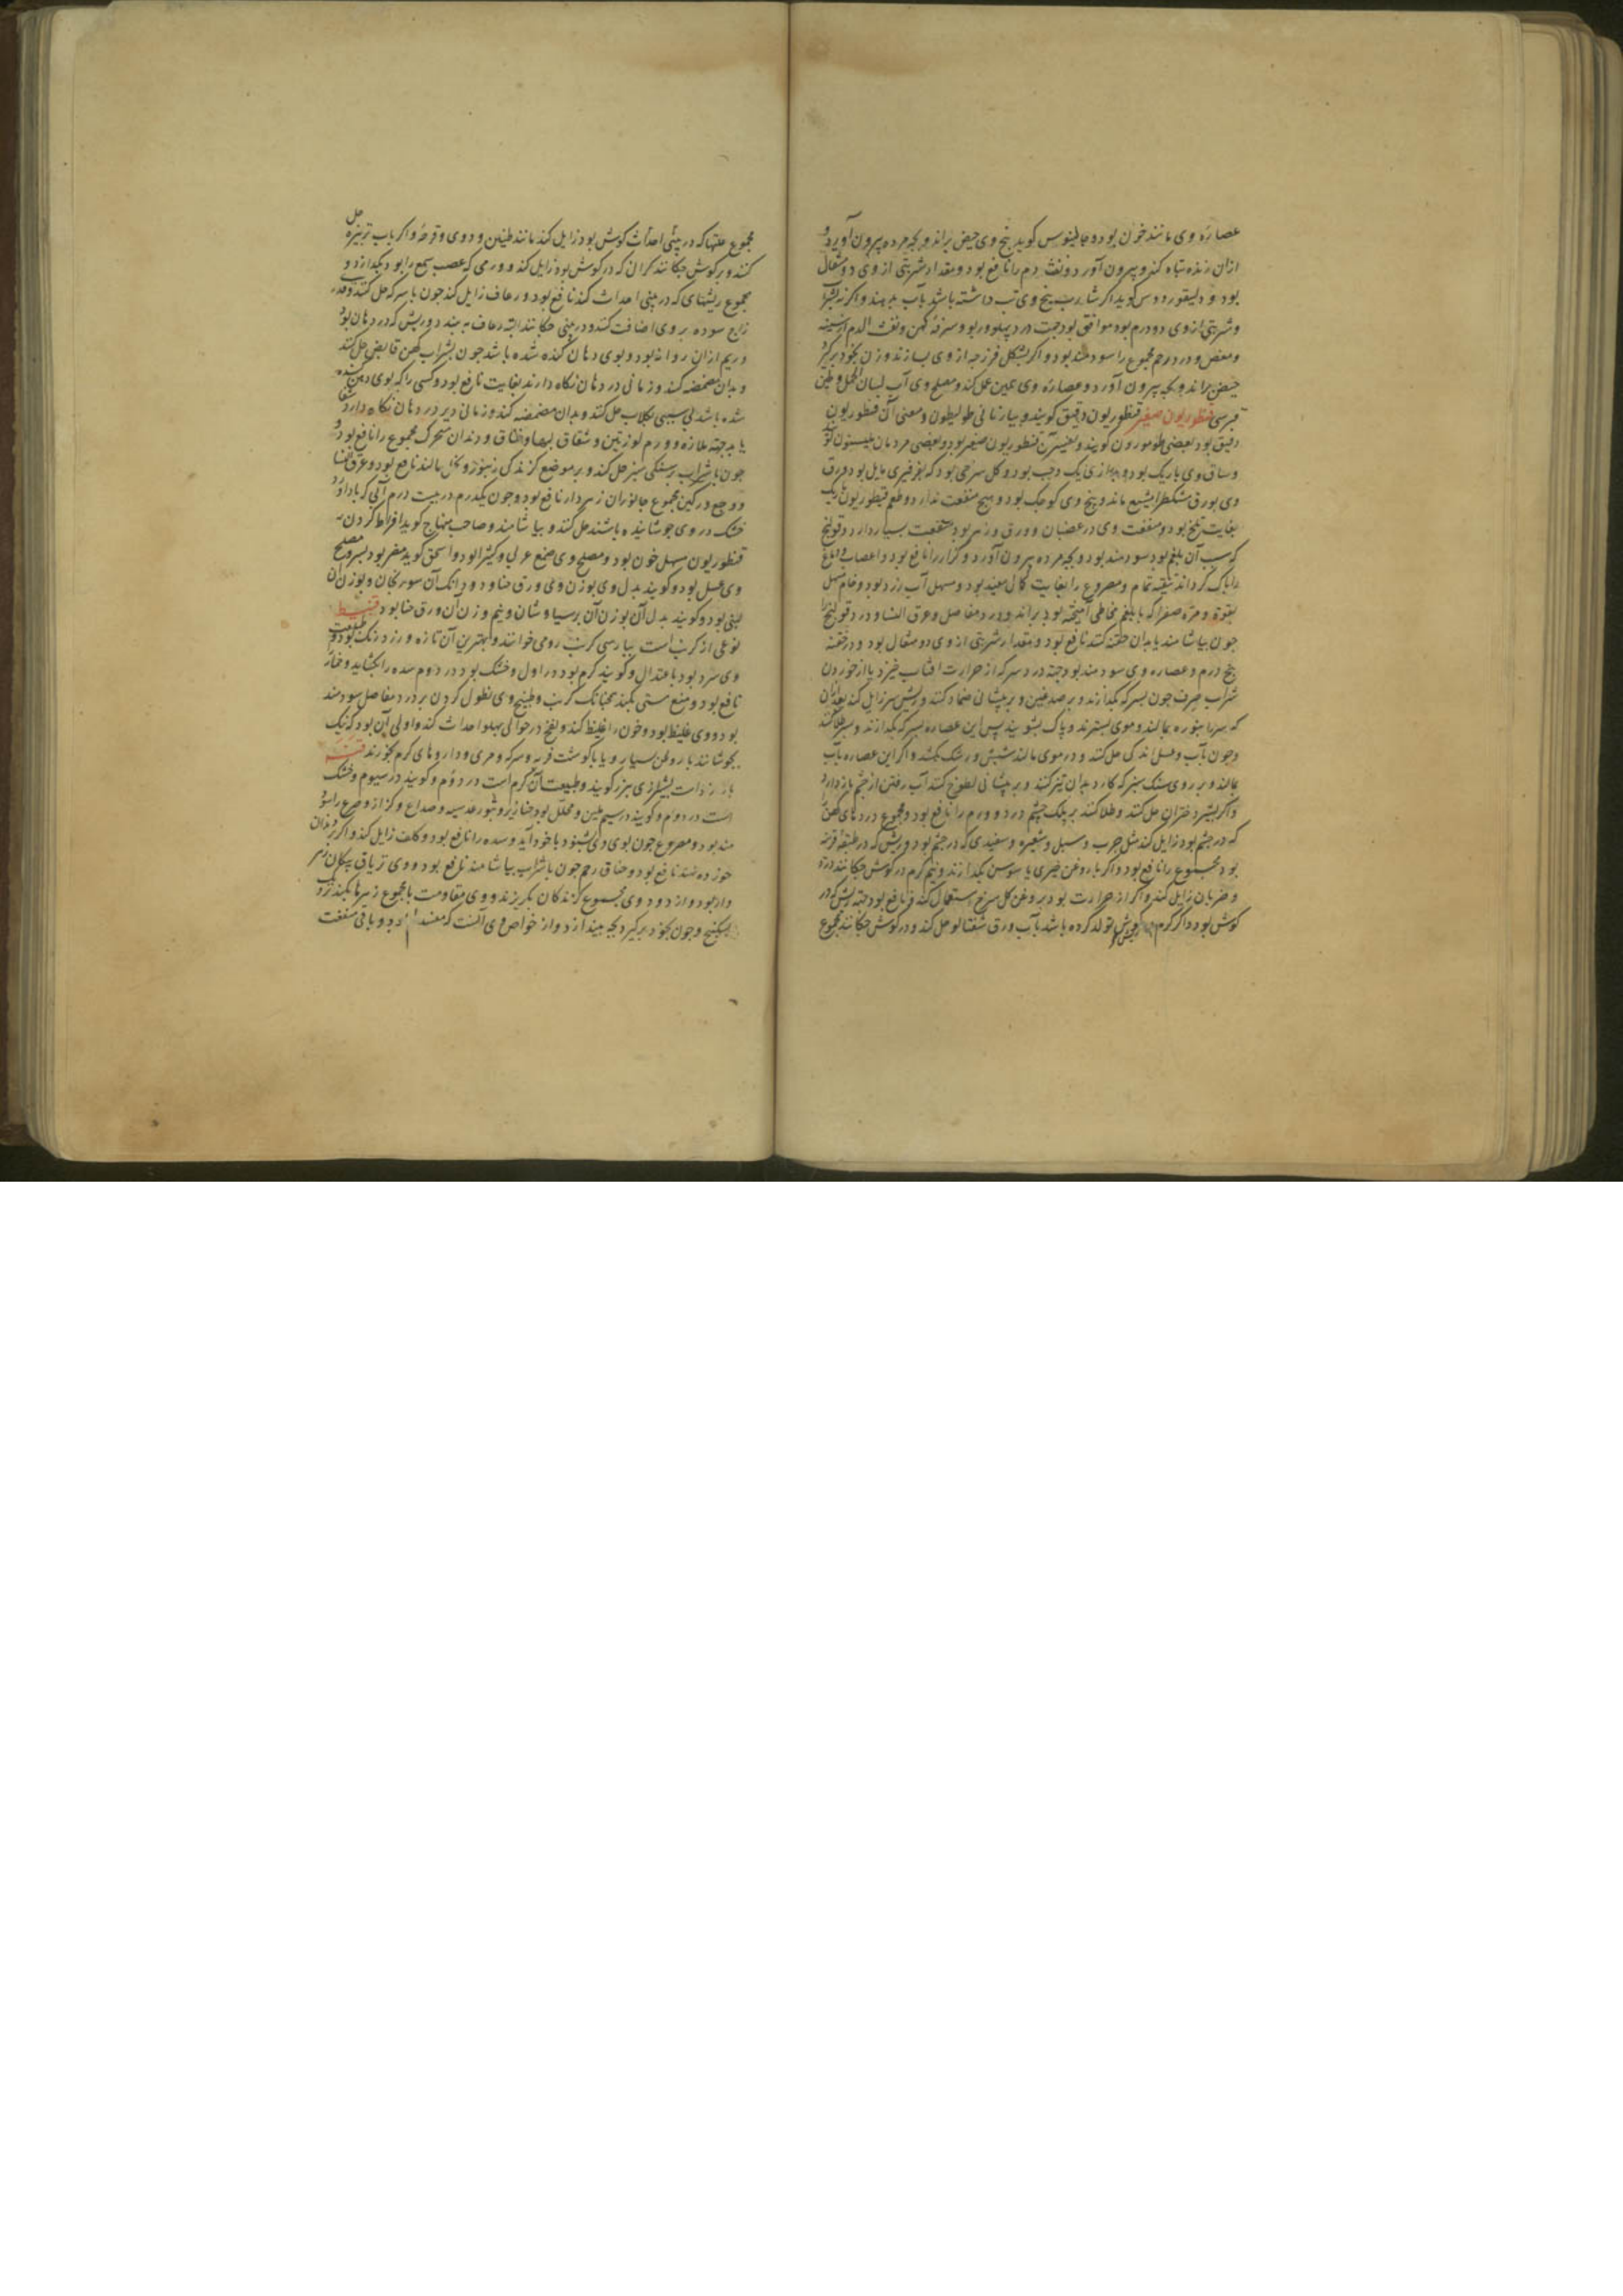 عصاره وی مانند خون بود و جالینوس کوید بیخ وی حیض براند و بچه مرده بیرون آورد و
ازان زنده تباه کند و بیرون آورد و نفث دم را نافع بود و مقدار شربتی از وی دو مثقال
بود و دیسقوریدوس کوید اکر شارب بیخ وی تب داشته باشد بآب بدهند و اکر نه بشراب
و شربتی از وی دو درم بود موافق بود جهت درد پهلو و ربو و سرفه کهن و نفث الدم از سینه
و مغص و درد رحم مجموع را سودمند بود و اکر بشکل فرزجه از وی بسازند و زن بخود برکیرد
حیض براند و بچه بیرون آورد و عصاره وی همین عمل کند و مصلح وی آب لسان الحمل و طین
قبرسی قنطوریون صغیر قنطوریون دقیق کویند و بیونانی طولیطون و معنی آن قنطوریون
دقیق بود بعضی طومورون کویند و تفسیر آن قنطوریون صغیر بود و بعضی مردمان
و ساق وی باریک بود و درازی یک وجب بود و کل سرخی بود که بفرفیری مایل بود و ورق
وی بورق مشکطرامشیع ماند و بیخ وی کوچک بود و هیچ منفعت ندارد و طعم قنطوریون باریک
بغایت تلخ بود و منفعت وی در غضبان و ورق و زهر بود و منفعت بسیار دارد و قولنج
که سبب آن بلغم بود سودمند بود و بچه مرده بیرون آورد و کزاز را نافع بود و اعصاب و دماغ
را پاک کرداند تنقیه تمام و مصروع را بغایت کمال مفید بود و مسهل آب زرد بود و خام مسهل
بقوة و مره صفرا که با بلغم مخاطی آمیخته بود براند و درد مفاصل و عرق النسا و درد قولنج را
چون بیاشامند یا بدان حقنه کنند نافع بود و مقدار شربتی از وی دو مثقال بود و در حقنه
پنج درم و عصاره وی سودمند بود جهة درد سر که از حرارت افتاب خیزد یا از خوردن
شراب صرف چون بسرکه بکدازند و بر صدغین و بر پیشانی ضماد کنند و ریش سر زایل کند بعد از آن
که سر را بنوره بمالند و موی بسترند و پاک بشویند پس این عصاره بسرکه بکدازند و بسر طلا کنند
و چون بآب و عسل اندکی حل کنند و در موی مالند شپش و رشک بکشد و اکر این عصاره بآب
بمالند و بر روی سنک سبز که کارد بدان تیز کنند و بر پیشانی لطوخ کنند آب رفتن از چشم باز دارد
و اکر بشیر دختران حل کنند و طلا کنند بر پلک چشم درد و ورم را نافع بود و مجموع دردهای کهن
که در چشم بود زایل کند مثل جرب و سبل و شعیره و سفیدی که در چشم بود و ریش که در طبقه قرنیه
بود مجموع را نافع بود و اکر با روغن خیری یا سوسن بکدازند و نیم کرم در کوش چکانند درد
و ضربان زایل کند و اکر از حرارت بود بروغن کل سرخ استعمال کنند نافع بود جهة ریش که در
کوش بود و اکر کرم در کوش تولد کرده باشد بآب ورق شفتالو حل کنند و در کوش چکانند مجموع
مجموع علتها که در بینی احداث کوش بود زایل کند مانند طنین و دوی و قرحه و اکر باب تربزه حل
کنند و در کوش چکانند کرانی که در کوش بود زایل کند و ورمی که عصب سمع را بود بکدازد و
مجموع ریشهای که در بینی احداث کند نافع بود و رعاف زایل کند چون با سرکه حل کنند و قدری
زاج سوده بر وی اضافت کنند و در بینی چکانند البته رعاف ببندد و ریش که در دهان بود
و ریم ازان روانه بود و بوی دهان کنده شده باشد چون بشراب کهن قابض حل کنند
و بدان مضمضه کنند و زمانی در دهان نکاه دارند بغایت نافع بود و کسی را که بوی دهن کنده
شده باشد بی سببی بکلاب حل کنند و بدان مضمضه کنند و زمانی دیر در دهان نکاه دارد شفا
یابد جهة ملازه و ورم لوزتین و شقاق لبها و خناق و دندان متحرک مجموع را نافع بود و
چون با شراب بسنکی سبز حل کنند و بر موضع کزندکی زنبور و نحل مالند نافع بود و عرق النسا
و وجع ورکین مجموع جانوران زهردار نافع بود و چون یکدرم در بیست درم آبی که بادآورد
خشک در وی جوشانیده باشند حل کنند و بیاشامند و صاحب منهاج کوید افراط کردن به
قنطوریون مسهل خون بود و مصلح وی صمغ عربی و کثیرا بود و اسحق کوید مضر بود بسر و مصلح
وی عسل بود و کویند بدل وی بوزن وی ورق حنا و دو دانک آن سورنجان و بوزن آن
لبنی بود و کویند بدل آن بوزن آن برسیاوشان و نیم وزن آن ورق حنا بود قنبیط
نوعی از کرنب است بپارسی کرنب رومی خوانند و بهترین آن تازه و زرد رنک بود و طبیعت
وی سرد بود باعتدال و کویند کرم بود در اول و خشک بود در دوم سده را بکشاید و خمار
نافع بود و منع مستی بکند همچنانک کرنب و طبیخ وی نطول کردن بر درد مفاصل سودمند
بود و وی غلیظ بود و خون را غلیظ کند و نفخ در حوالی پهلو احداث کند و اولی آن بود که نیک
بجوشانند با روغن بسیار و یا با کوشت فربه و سرکه و مری و داروهای کرم بخورند قنه
بارزد است بشیرازی بیرز کویند و طبیعت آن کرم است در دوم و کویند در سیوم و خشک
است در دوم و کویند در سیم ملین و محلل بود خنازیر و بثور عدسیه و صداع و کزاز و صرع را سود
مند بود و مصروع چون بوی وی بشنود با خود آید و سده را نافع بود و کلف زایل کند و اکر بر دندان
خورده نهند نافع بود و خناق رحم چون با شراب بیاشامند نافع بود و وی تریاق پیکان زهر
دار بود و از دود وی مجموع کزندکان بکریزند و وی مقاومت با مجموع زهرها بکند نزدیک
سکبینج و چون بخود برکیرد بچه بیندازد و از خواص وی آنست که مفسد بود و باقی منفعت